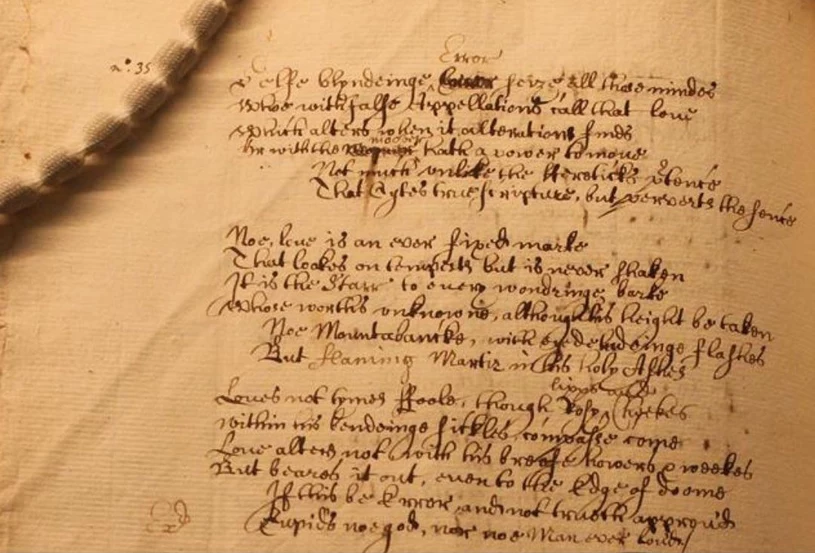 Error
n°. 35
Selfe blyndeinge seize all those mindes
Whoe with false Appellations call that loue
Which alters when it alterations finds
mover
Or with the hath a power to moue
Not much unlike the Hereticks ptence
That Cytes true scripture, but perverts the sence
Noe, loue is an ever fixed marke
That lookes on tempests but is never shaken
It is the Starr to euery wondringe barke
Whose worths unknowne, although his height be taken
Noe Mountabancke, with eye deludeinge flashes
But flaming Martir in his holy Ashes
lipps and
Loues not tymes ffoole, though Rosy Cheekes
within his bendeinge sickles, compasse come
Loue alters not with his breife howers & weekes
But beares it out, even to the Edge of doome
If this be Errour and not truth approu'd
Cupids noe god, nor noe Man ever lou'd